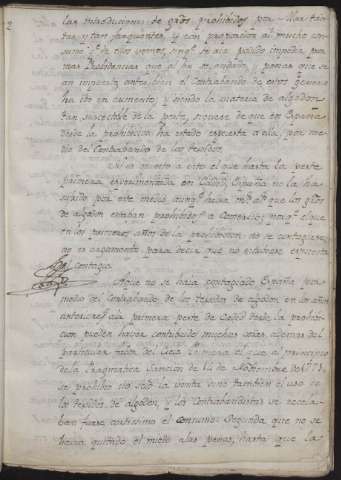 2
las introducciones de gros. prohividos por Mar tan-
tas y tan frequentes, y con proporcion al mucho con-
sumo qe. de ellos vemos, sin qe. se aia podido impedir por
mas Providencias que al fin se
un imperto antes bien el Contrabando de estos generos
ha ido en aumento, y siendo la materia de algodon
tan susceptible de la peste, se ve de que en España
desde la prohivicion ha estado expuesta a ella, por me-
dio del Contrabando de los texidos.
En quanto a esto el que hasta la peste
primera experimentada en Cadiz España no la ha
sufrido por este medio, aunqe. havia ms. as. que los gros.
de algodon estaban prohividos a Comercio, por qe. el que
en los primeros años de la prohivicion no se contagiase
no es argumento para decir que no estuviese expuesta
al Contagio.
Aque no se haia contagiado España por
medio del Contrabando de los texidos de algodon en los años
anteriores a la primera peste de Cadiz desde la prohivi-
cion pueden haver contribuido muchas cosas, ademas del
particular favor del Cielo. Primera el que al principio
de la Pragmatica Sancion de 14 de Noviembre de 1771,
se prohivio no solo la venta sino tambien el uso de
los texidos de algodon, y los Contrabandistas se recela-
ban fuera cortisimo el consumo: Segunda, que no se
havia quitado el miedo a las penas, hasta que la